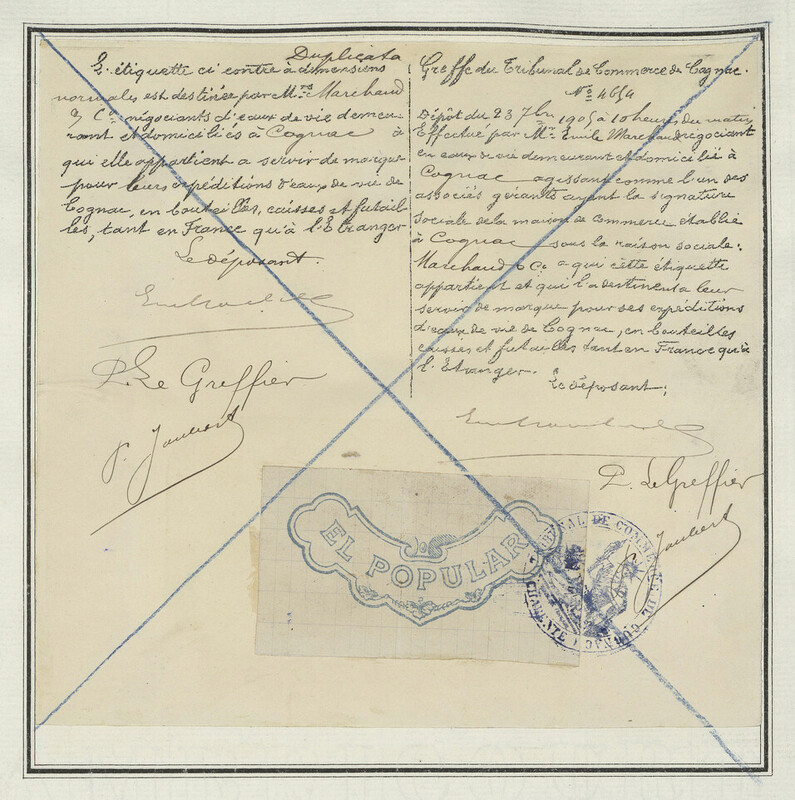 Duplicata
L'étiquette ci contre à dimensions
normales est destinée par Mrs Marchaud
& Ce négociants d'eaux de vie demeu-
rant et domiciliés à Cognac à
qui elle appartient a servir de marque
pour leurs expéditions d'eaux de vie de
Cognac, en bouteilles, caisses et futail-
les, tant en France qu'à l'Etranger
Le déposant.
P. Le Greffier
P. Joubert
Greffe du Tribunal de Commerce de Cognac.
No 4654
Dépôt du 23 7bre 1905 à 10 heures du matin
Effectué par Mr Emile Marchaud négociant
en eaux de vie demeurant et domicilié à
Cognac agissant comme l'un des
associés gérants ayant la signature
sociale de la maison de Commerce établie
à Cognac sous la raison sociale:
Marchaud & Ce a qui cette étiquette
appartient et qui l'a destinent a leur
servir de marque pour ses expéditions
d'eaux de vie de Cognac, en bouteilles
caisses et futailles tant en France qu'à
l'Etranger.
Le déposant;
P. Le Greffier
P. Joubert
EL POPULAR
TRIBUNAL DE COMMERCE DE COGNAC